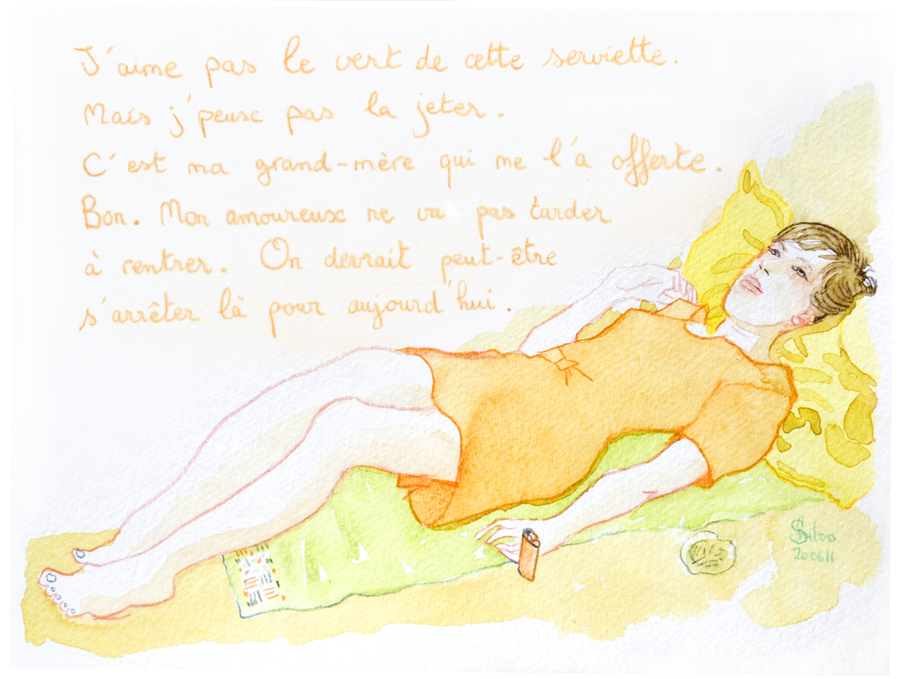 J'aime pas le vert de cette serviette.
Mais j'peux pas la jeter.
C'est ma grand-mère qui me l'a offerte.
Bon. Mon amoureux ne va pas tarder
à rentrer. On devrait peut-être
s'arrêter là pour aujourd'hui.
200611